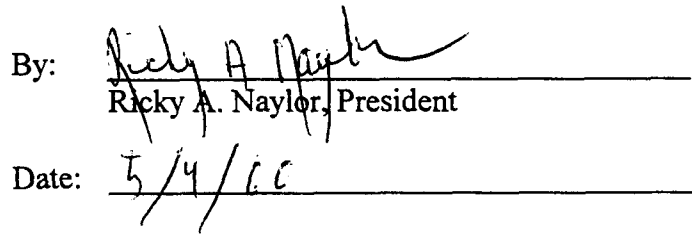 By: Ricky A Naylor
Ricky A. Naylor, President
Date: 5/4/